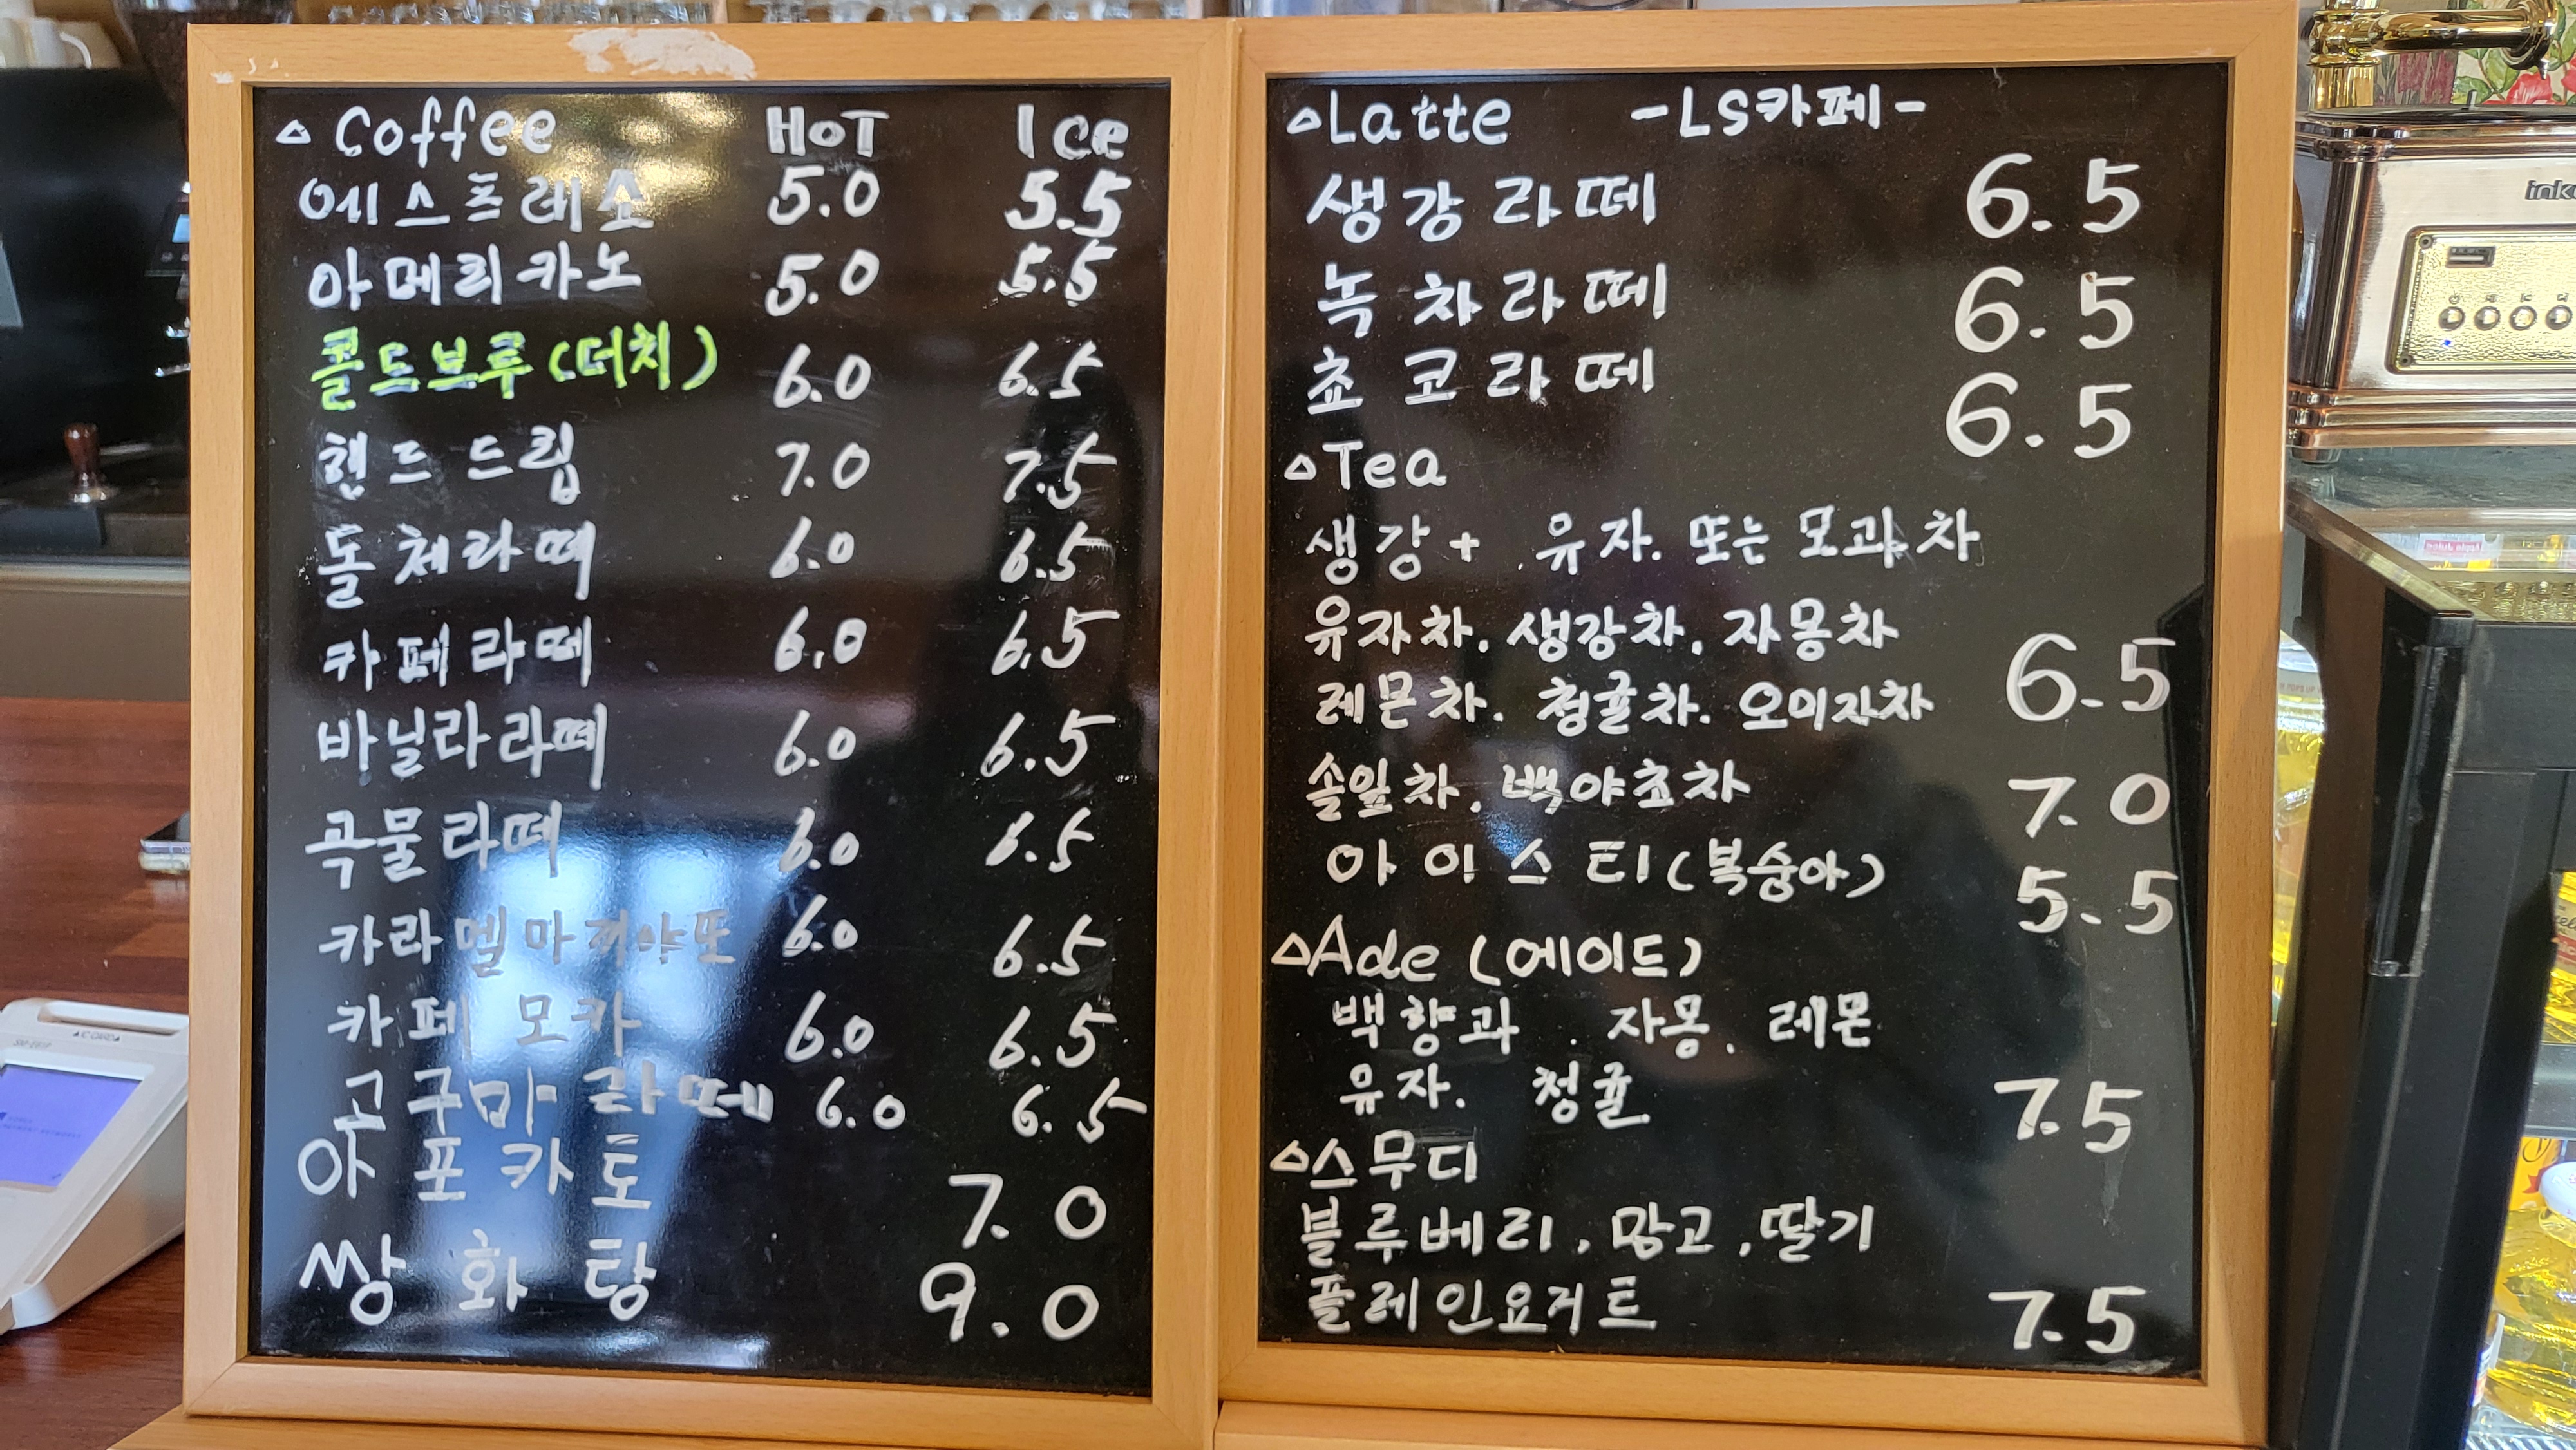 △ Coffee HoT Ice
에스프레소 5.0 5.5
아메리카노 5.0 5.5
콜드브루(더치) 6.0 6.5
핸드드립 7.0 7.5
돌체라떼 6.0 6.5
카페라떼 6.0 6.5
바닐라라떼 6.0 6.5
곡물라떼 6.0 6.5
카라멜마끼야또 6.0 6.5
카페모카 6.0 6.5
고구마라떼 6.0 6.5
아포카토 7.0
쌍화탕 9.0
△Latte -LS카페-
생강라떼 6.5
녹차라떼 6.5
쵸코라떼 6.5
△Tea
생강+유자.또는 모과차
유자차.생강차.자몽차
레몬차.청귤차.오미자차 6.5
솔잎차.백야초차 7.0
아이스티(복숭아) 5.5
△Ade (에이드)
백향과.자몽.레몬
유자.청귤 7.5
△스무디
블루베리.망고.딸기
플레인요거트 7.5
▲CARD▲